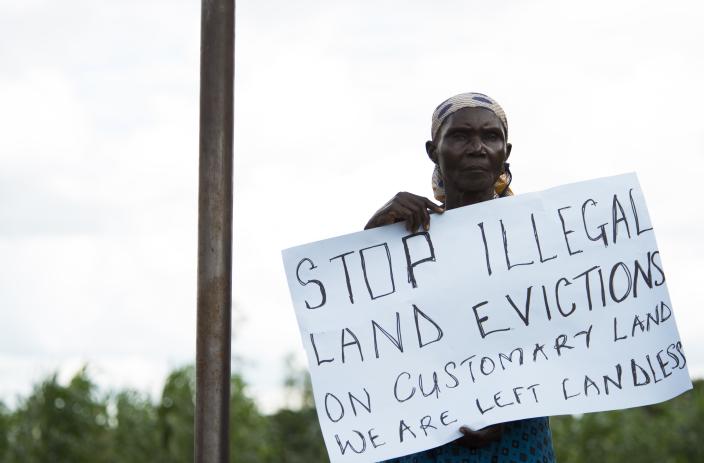 STOP ILLEGAL
LAND EVICTIONS
ON CUSTOMARY LAND
WE ARE LEFT LANDLESS